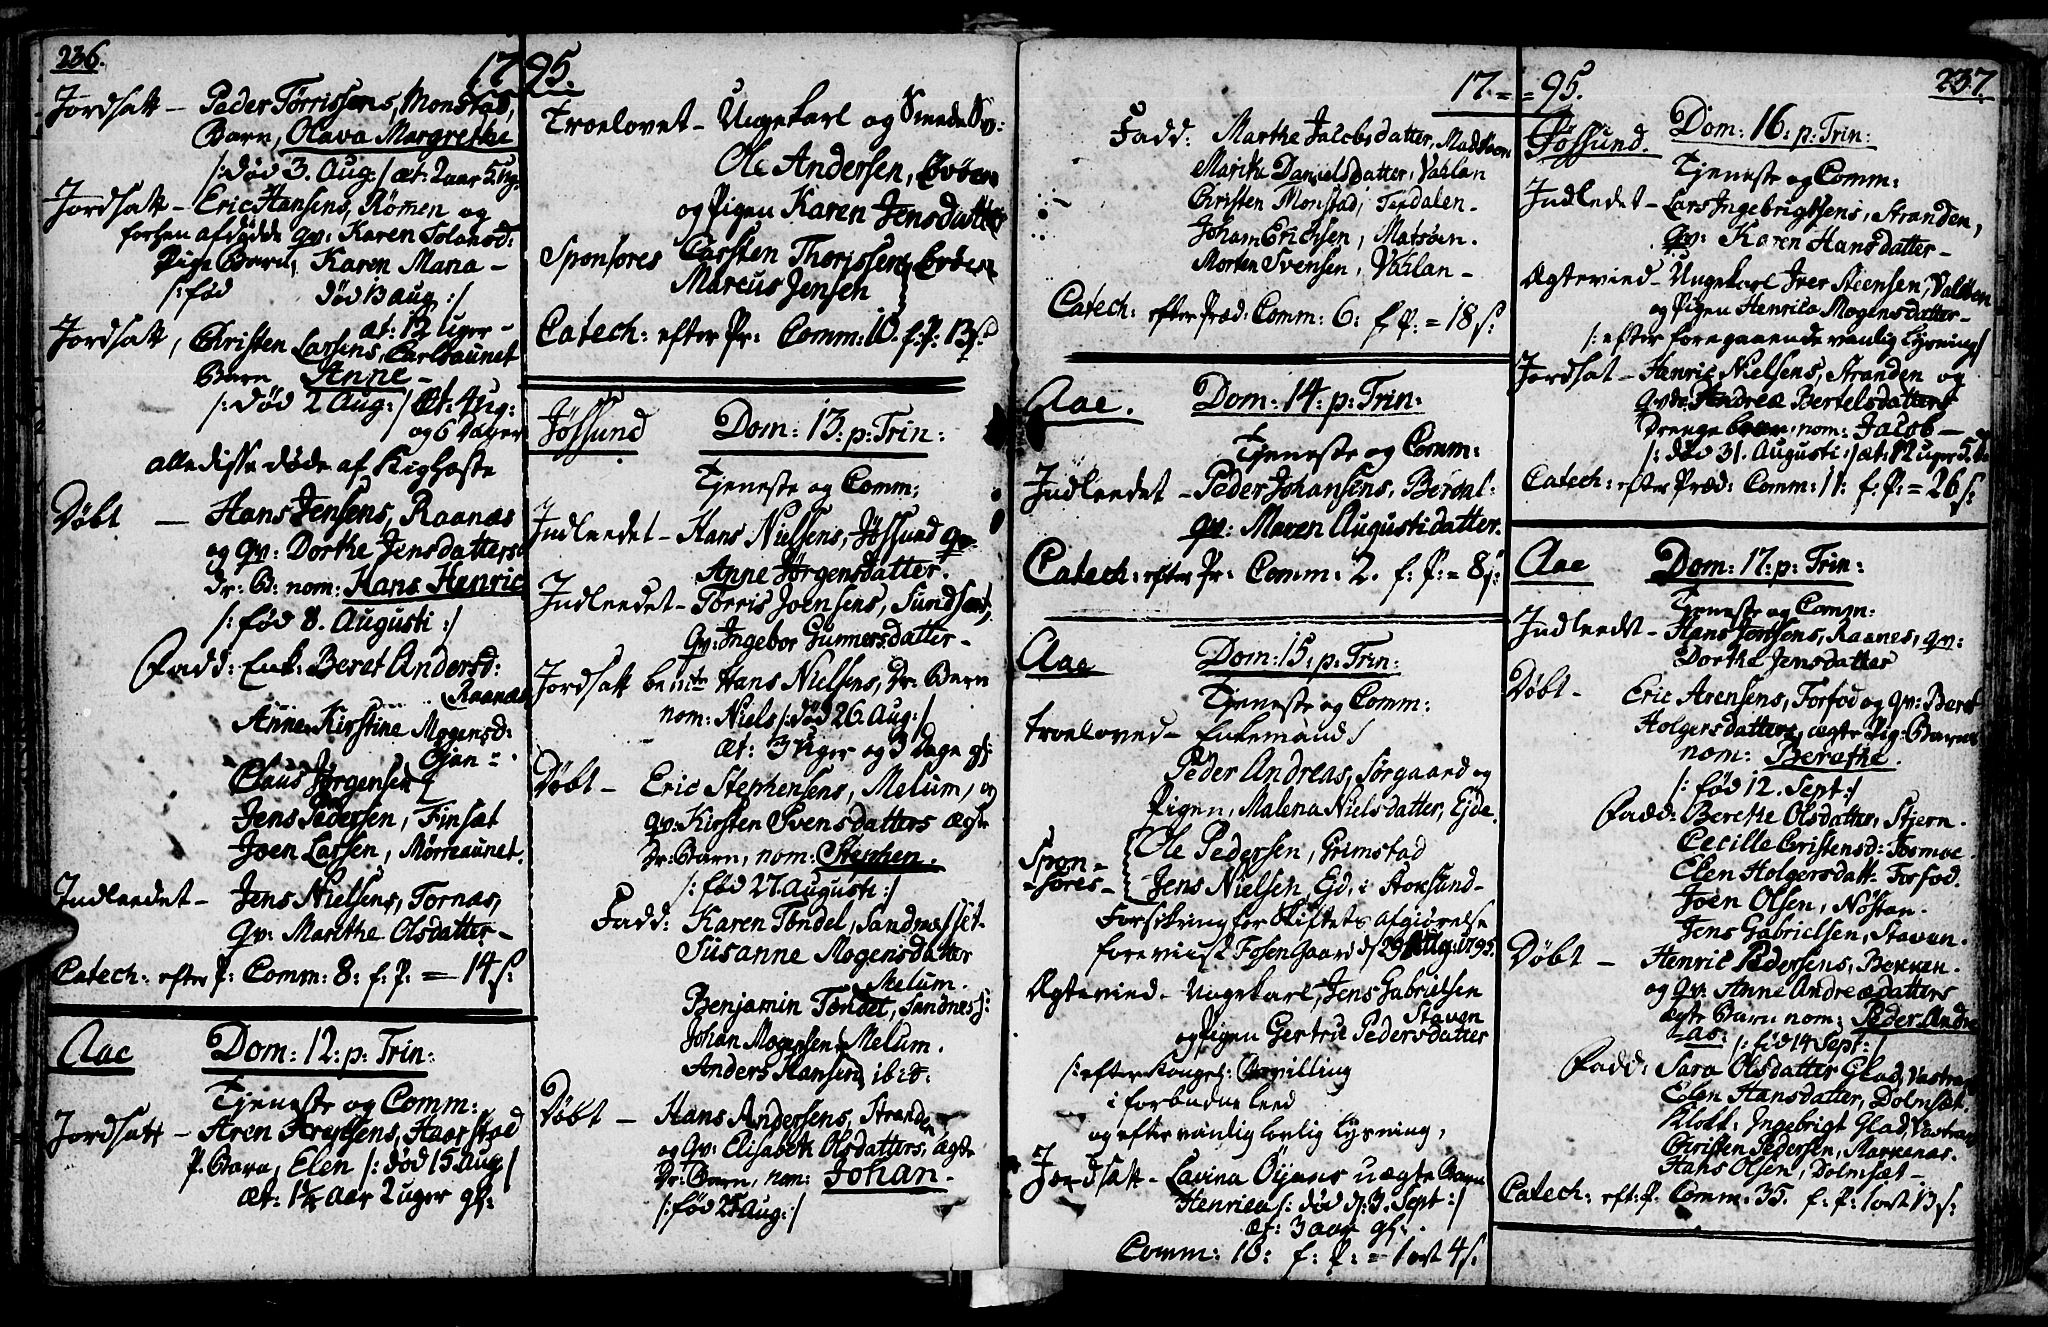 236.
1795.
Jordsatt – Peder Tørrissens, Monstad,
Barn, Olava Margrethe
/: død 3. Aug: / æt: 2 aar 5 ug.
Jordsatt – Eric Hansens, Römen og
forhen afdøde qv: Karen Tolaasd:
Pige Barn, Karen Maria –
/: fød død 13 aug :/
æt: 12 uger –
Jordsatt, Christen Larsens, Carlsaunet
Barn Anne –
/: død 2 Aug: / Æt: 4 ug:
og 6 Dager
alle disse døde af Kighoste
Døbt – Hans Jensens, Raanæs
og qv: Dorthe Jensdatters
Dr: B: nom: Hans Henric
/: fød 8. Augusti :/
Fadd: Enk: Beret Andersd:
Raanæs
Anne Kirstine Mogensd:
Ojan –
Claus Jørgensen
Jens Pedersen, Finsæt
Joen Larsen, Mørreaunet.
Indleedet – Jens Nielsens, Tornæs,
Qv: Marithe Olsdatter –
Catech: efter P: Comm: 8: f: P: = 14 s:
Aae Dom: 12: p: Trin:
Tjeneste og Comm:
Jordsatt – Aren Areutsens, Haarstad
P. Barn, Elen /: død 15 Aug /
æt: 1½ Aar 2 uger gl:
Troelovet – Ungekarl og Smede Sv:
Ole Andersen,
og Pigen Karen Jensdatter
Sponsores Carsten Thorissen
Marcus Jensen
Catech: efter Pr: Comm: 10. f: P: 13 s:
Jössund Dom: 13: p: Trin:
Tjeneste og Comm:
Indleedet – Hans Nielsens, Jössund qv
Anne Jørgensdatter.
Indleedet – Torris Joensens, Sundsæt,
Qv: Ingebor Gunnersdatter –
Jordsatt bemte Hans Nielsens, Dr: Barn
nom: Niels /: død 26. Aug: /
æt: 3 Uger og 3 Dage gl:
Døbt – Eric Stephensens, Melum, og
qv: Kirsten Svensdatters ægte
Dr: Barn, nom: Stephen.
/: fød 27. Augusti :/
Fadd: Karen Tøndel, Sandnæsset.
Susanne Mogensdatter
Melum.
Benjamin Tøndel, Sandness:
Johan Mogensen, Melum.
Anders Hansen, ibid:
Døbt – Hans Andersens, Stranden
og Qv: Elisabeth Olsdatters, ægte
Dr: Barn, nom: Johan –
/: fød 25 Aug: /
237
17 = = 95.
Fadd: Marthe Jacobsdatter, Madsøen
Marithe Danielsdatter, Vahlan
Christen Monstad, Tendalen –
Joham Erichsen, Matsöen.
Morten Svensen, Vahlan –
Catech: efter Præd: Comm: 6: f: P: = 18 s:
Aae. Dom: 14: p: Trin:
Tjeneste og Comm:
Indleedet – Peder Johansens, Berdal:
qv: Maren Augustidatter.
Catech: efter Pr: Comm: 2. f: P: = 8 s:
Aae Dom: 15: p: Trin:
Tjeneste og Comm:
Troeloved – Enkemand /
Peder Andreas, Sørgaard og
Pigen, Malena Nielsdatter, Ejde.
Spon= Ole Pedersen, Grimstad
=sores – Jens Nielsen, Ejd, i Stoksund –
Forsikring for Skiftets Afgiørelse
foreviist Fosen Gaard d 29 Aug 1795.
Ægtevied – Ungekarl, Jens Gabrielsen
Staven
og Pigen Gertru Pedersdatter
/: efter Kongel: Bevilling
i forbudne leed
og efter vanlig lovlig Lysning,
Jordsatt – Lavina Øijens uægte Barn
Henrica /: død d: 3. Sept :/
æt: 3 aar gl:
Comm: 10: f: P: = 1 ort 4 s:
Jøssund. Dom: 16: p: Trin:
Tjeneste og Comm:
Indledet – Lars Ingebrigtsens, Stranden,
qv: Karen Hansdatter –
Ægtevied – Ungekarl Iver Steensen, Valsøen
og Pigen Henrica Mogensdatter –
/: efter foregaaende vanlig Lysning /
Jordsat – Henric Nielsens, Stranden og
qvdr: Andrea Bertelsdatters
Drengebarn, nom: Jacob –
/: død 31. Augusti :/ æt: 12 uger 5 d.
Catech: efter Præd: Comm: 11: f: P: = 26 s:
Aae Dom: 17: p: Trin:
Tjeneste og Comm:
Indleedt – Hans Jenssens, Raanes, qv:
Dorthe Jensdatter
Døbt – Eric Arensens, Forfod og qv: Beret
Holgersdatters, ægte Pig: Barn
nom: Berethe.
/: fød 12. Sept: /
Fadd: Berethe Olsdatter, Stjern.
Cecille Christensd: Tosmoe
Elen Holgersdatt: Forfod.
Joen Olsen, Nøstan.
Jens Gabrielsen, Staven.
Døbt – Henric Pedersens, Bekken.
og qv: Anne Andreædatters
ægte Barn nom: Peder Andre
as: /: fød 14 Sept: /
Fadd: Sara Olsdatter Glad, Vastran
Elen Hansdatter, Dolmsæt.
Klokk: Ingebrigt Glad, Vastran
Christen Pedersen, Harkenæs.
Hans Olsen, Dolmsæt –
Catech: eft: P. Comm: 35. f: P: 1 ort 13 s: